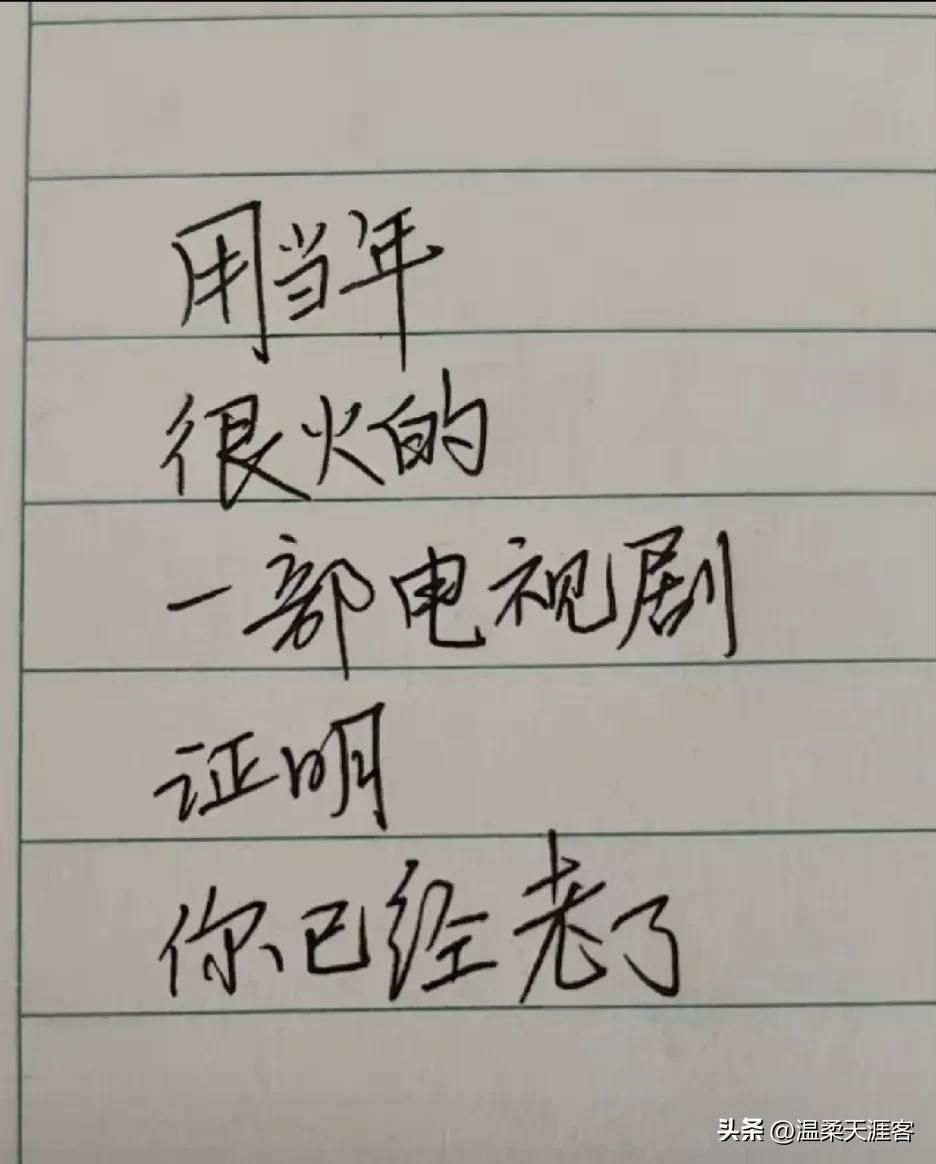 用当年
很火的
一部电视剧
证明
你已经老了
头条 @温柔天涯客